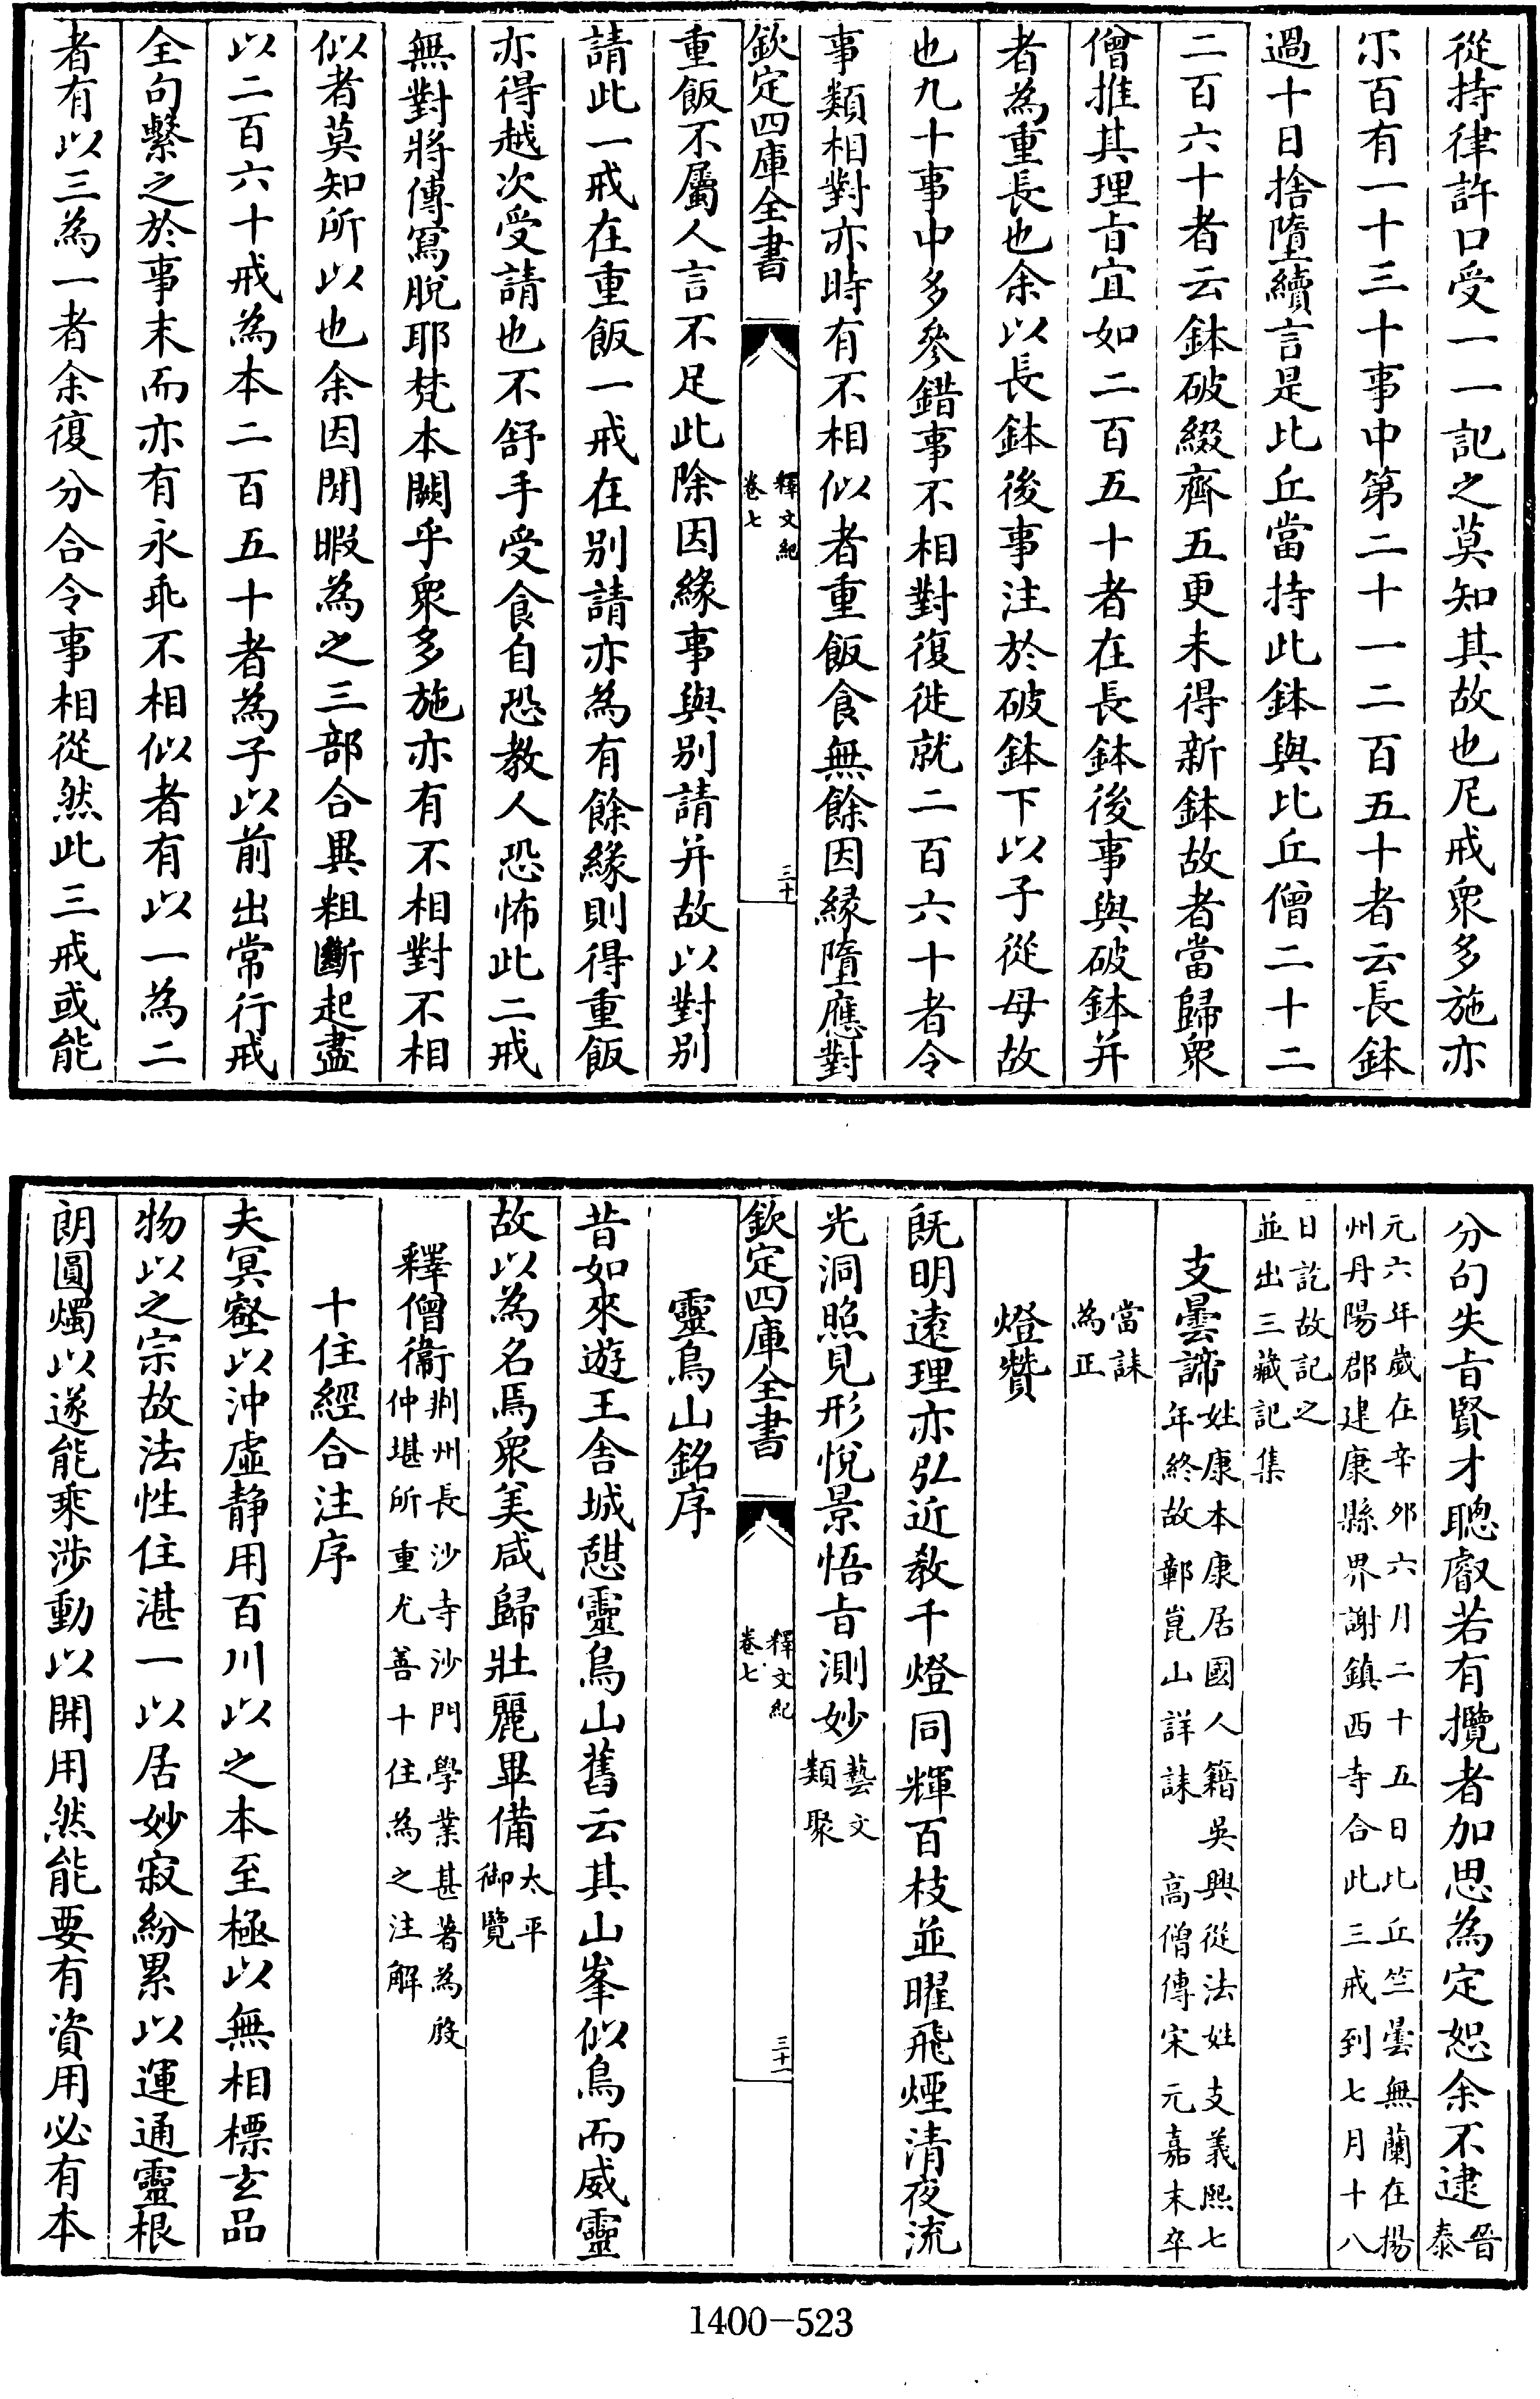 從持律許口受一一記之莫知其故也尼戒衆多施亦
尓百有一十三十事中第二十一二百五十者云長鉢
過十日捨墮續言是比丘當持此鉢與比丘僧二十二
二百六十者云鉢破綴齊五更未得新鉢故者當歸衆
僧推其理㫖宜如二百五十者在長鉢後事與破鉢并
者為重長也余以長鉢後事注於破鉢下以子從母故
也九十事中多參錯事不相對復徙就二百六十者令
事類相對亦時有不相似者重飯食無餘因緣墮應對
欽定四庫全書
釋文紀
卷七
三十
重飯不屬人言不足此除因緣事與别請并故以對别
請此一戒在重飯一戒在别請亦為有餘緣則得重飯
亦得越次受請也不舒手受食自恐教人恐怖此二戒
無對將傳寫脱耶梵本闕乎衆多施亦有不相對不相
似者莫知所以也余因閒暇為之三部合異粗斷起盡
以二百六十戒為本二百五十者為子以前出常行戒
全句繫之於事末而亦有永乖不相似者有以一為二
者有以三為一者余復分合令事相從然此三戒或能
分句失㫖賢才聰叡若有攬者加思為定恕余不逮晉泰
元六年歲在辛夘六月二十五日比丘竺曇無蘭在揚
州丹陽郡建康縣界謝鎮西寺合此三戒到七月十八
日訖故記之
並出三藏記集
支曇諦姓康本康居國人籍吳興從法姓支義熙七
年終故鄣崑山詳誄 高僧傳宋元嘉末卒
當誄
為正
燈贊
既明遠理亦弘近教千燈同輝百枝並曜飛煙清夜流
光洞照見形悅景悟㫖測妙藝文類聚
欽定四庫全書
釋文紀
卷七
三十一
靈鳥山銘序
昔如來遊王舍城憇靈鳥山舊云其山峯似鳥而威靈
故以為名焉衆美咸歸壯麗畢備太平御覽
釋僧衞荆州長沙寺沙門學業甚著為殷
仲堪所重尤善十住為之注解
十住經合注序
夫冥壑以沖虛静用百川以之本至極以無相標玄品
物以之宗故法性住湛一以居妙寂紛累以運通靈根
朗圓燭以遂能乘涉動以開用然能要有資用必有本
1400-523